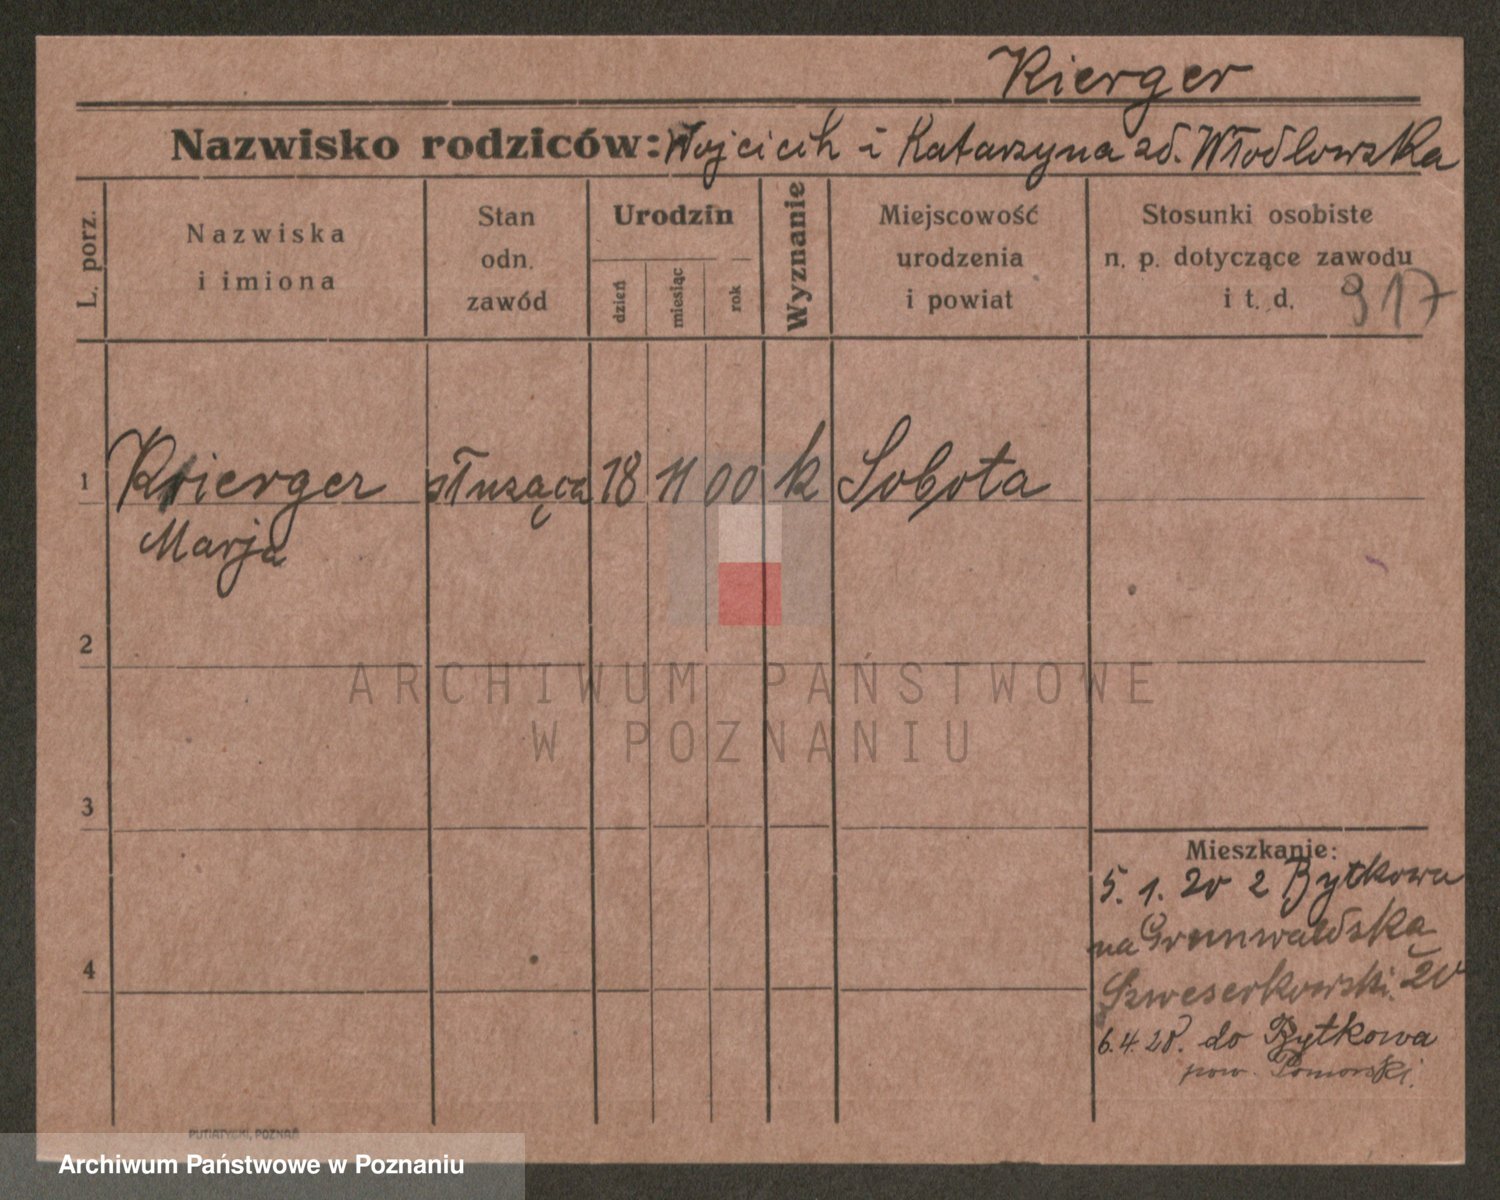 Rierger
Nazwisko rodziców: Wojciech i Katarzyna zd. Włodlowska
L. porz.
Nazwiska
i imiona
Stan
odn.
zawód
Urodzin
dzień
miesiąc
rok
Wyznanie
Miejscowość
urodzenia
i powiat
Stosunki osobiste
n. p. dotyczące zawodu
i t. d.
917
1 Rierger służąca 18 11 00 k Sobota
Marja
2
3
4
Mieszkanie:
5. 1. 20 z Bytkowa
na Grunwaldską
20
6. 4. 20. do Bytkowa
pow.
ARCHIWUM PAŃSTWOWE
W POZNANIU
PUTIATYCKI, POZNAŃ
Archiwum Państwowe w Poznaniu